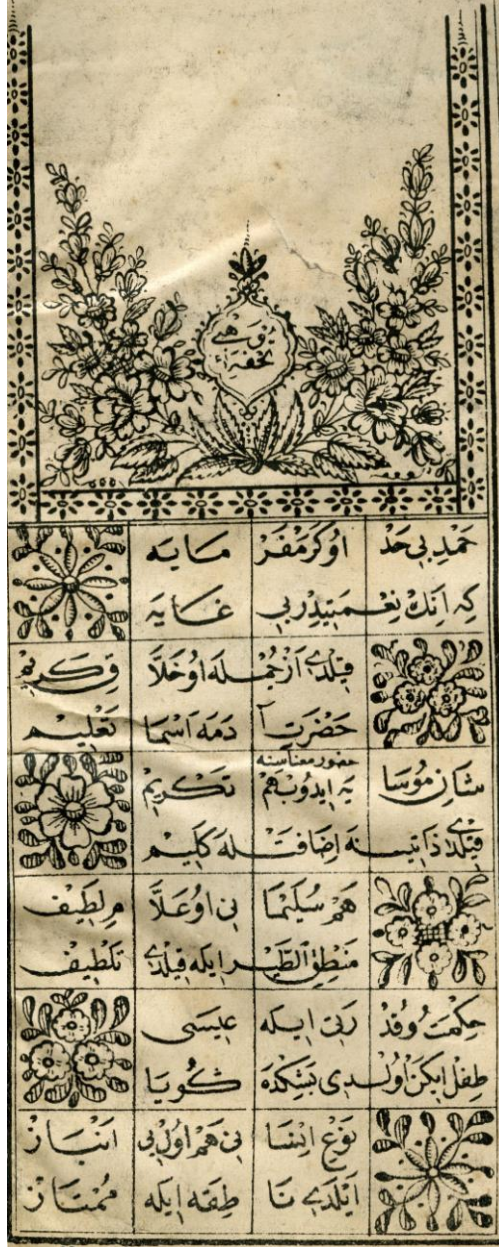 تحفهٔ وهبی
حَمْدِ بِی حَدْ اوُكَرَمْفَرْ مَايَه
كِه اَنِكْ نِعْمَتِيدِرْ بِی غَايَه
قِيلْدِی اَزْجُمْلَه اوُخَلَّا قِ كَرِيمْ
حَضْرَتِ آ دَمَه اَسْمَا تَعْلِيمْ
حضور معناسنه
شَانِ مُوسَا يَه اِيدُوبْ هَمْ تَكْرِيمْ
قِيلْدِی ذَاتِينَه اِضَافَتْلَه كَلِيمْ
هَمْ سُلَيْمَا نِی اوُعَلَّا مِ لَطِيفْ
مَنْطِقُ الطَّيْر اِيلَه قِيلْدِی تَلْطِيفْ
حِكْمَتُ وقُدْ رَتِی اِيلَه عِيسَی
طِفْل اِيكَنْ اوُلْدِی بَشِكْدَه كُويَا
نَوْعِ اِنْسَا نِی هَمْ اوُلْ بِی اَنْبَازْ
اَيْلَدِی نَا طِقَه اِيلَه مُمْتَازْ